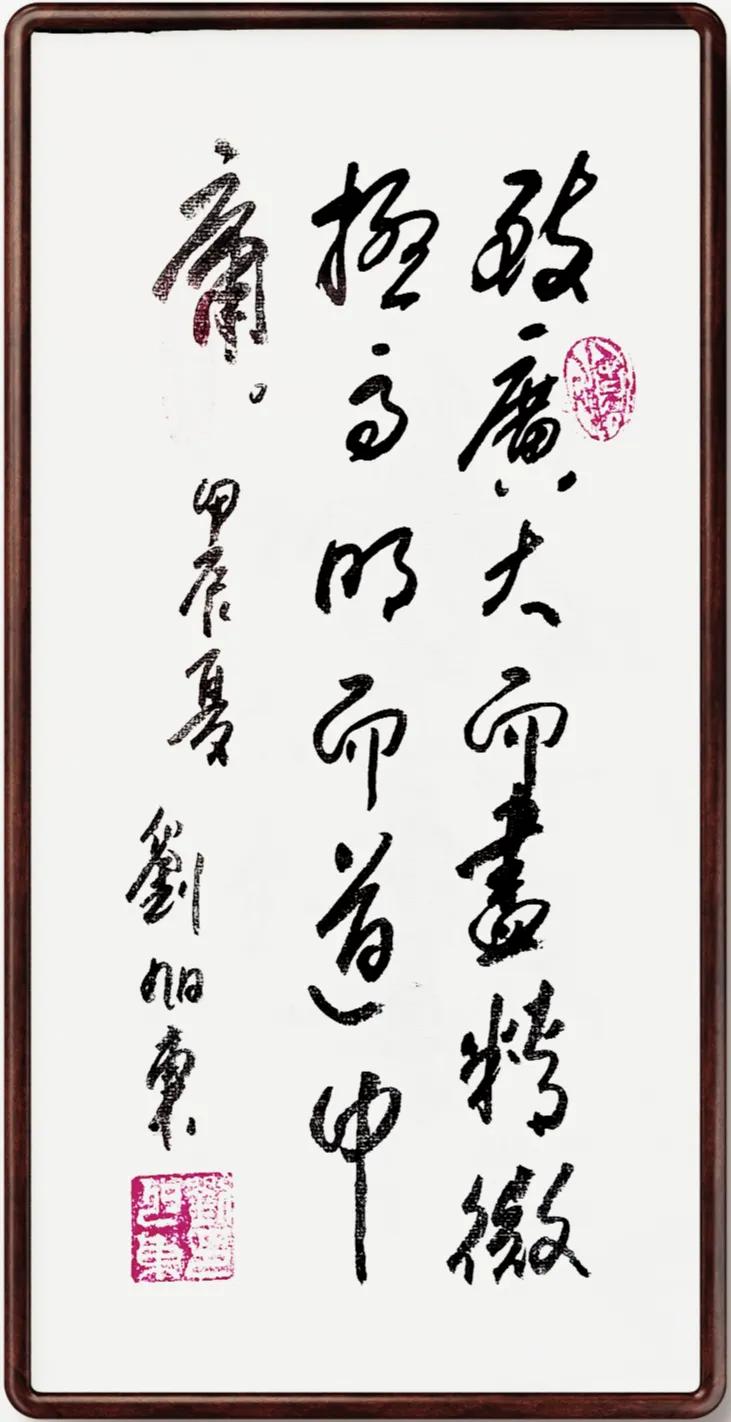 致廣大而盡精微
極高明而道中
庸。
甲辰夏
劉旭東